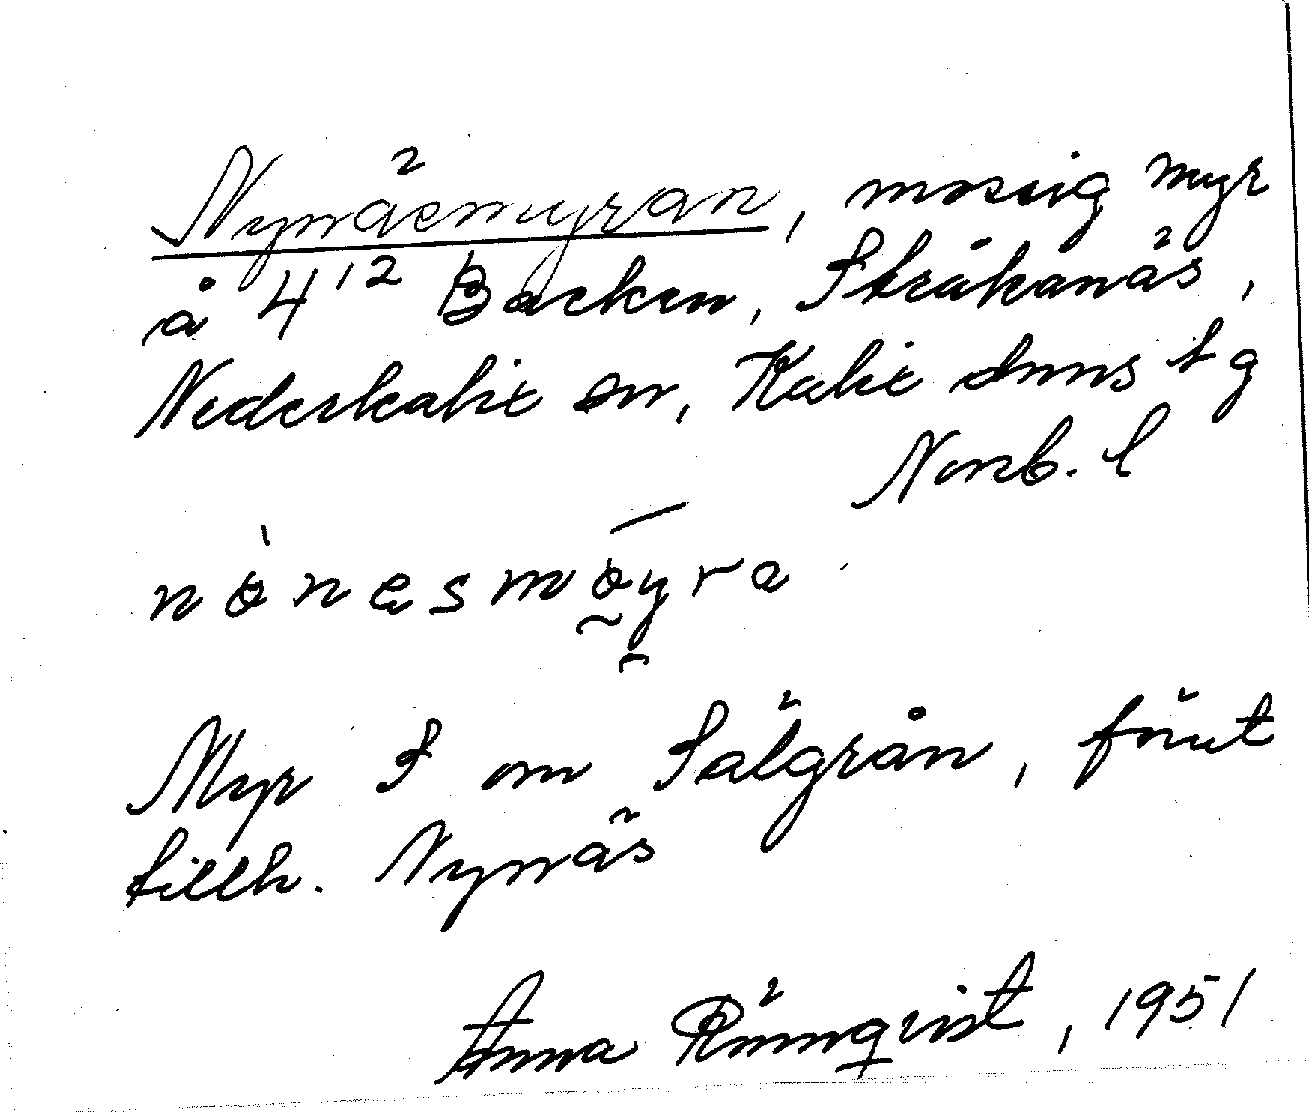 Nynäsmyran, mossig myr
å 4¹² Backen, Stråkanäs,
Nederkalix sn, Kalix dnns tg
Norrb. l
nönesmöyra
Myr S om Sälgrån, förut
tillh. Nynäs
Anna Rönnqvist, 1951